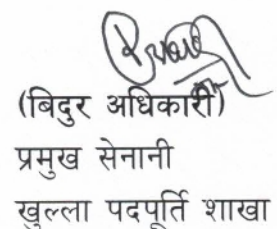 (बिदुर अधिकारी)
प्रमुख सेनानी
खुल्ला पदपूर्ति शाखा